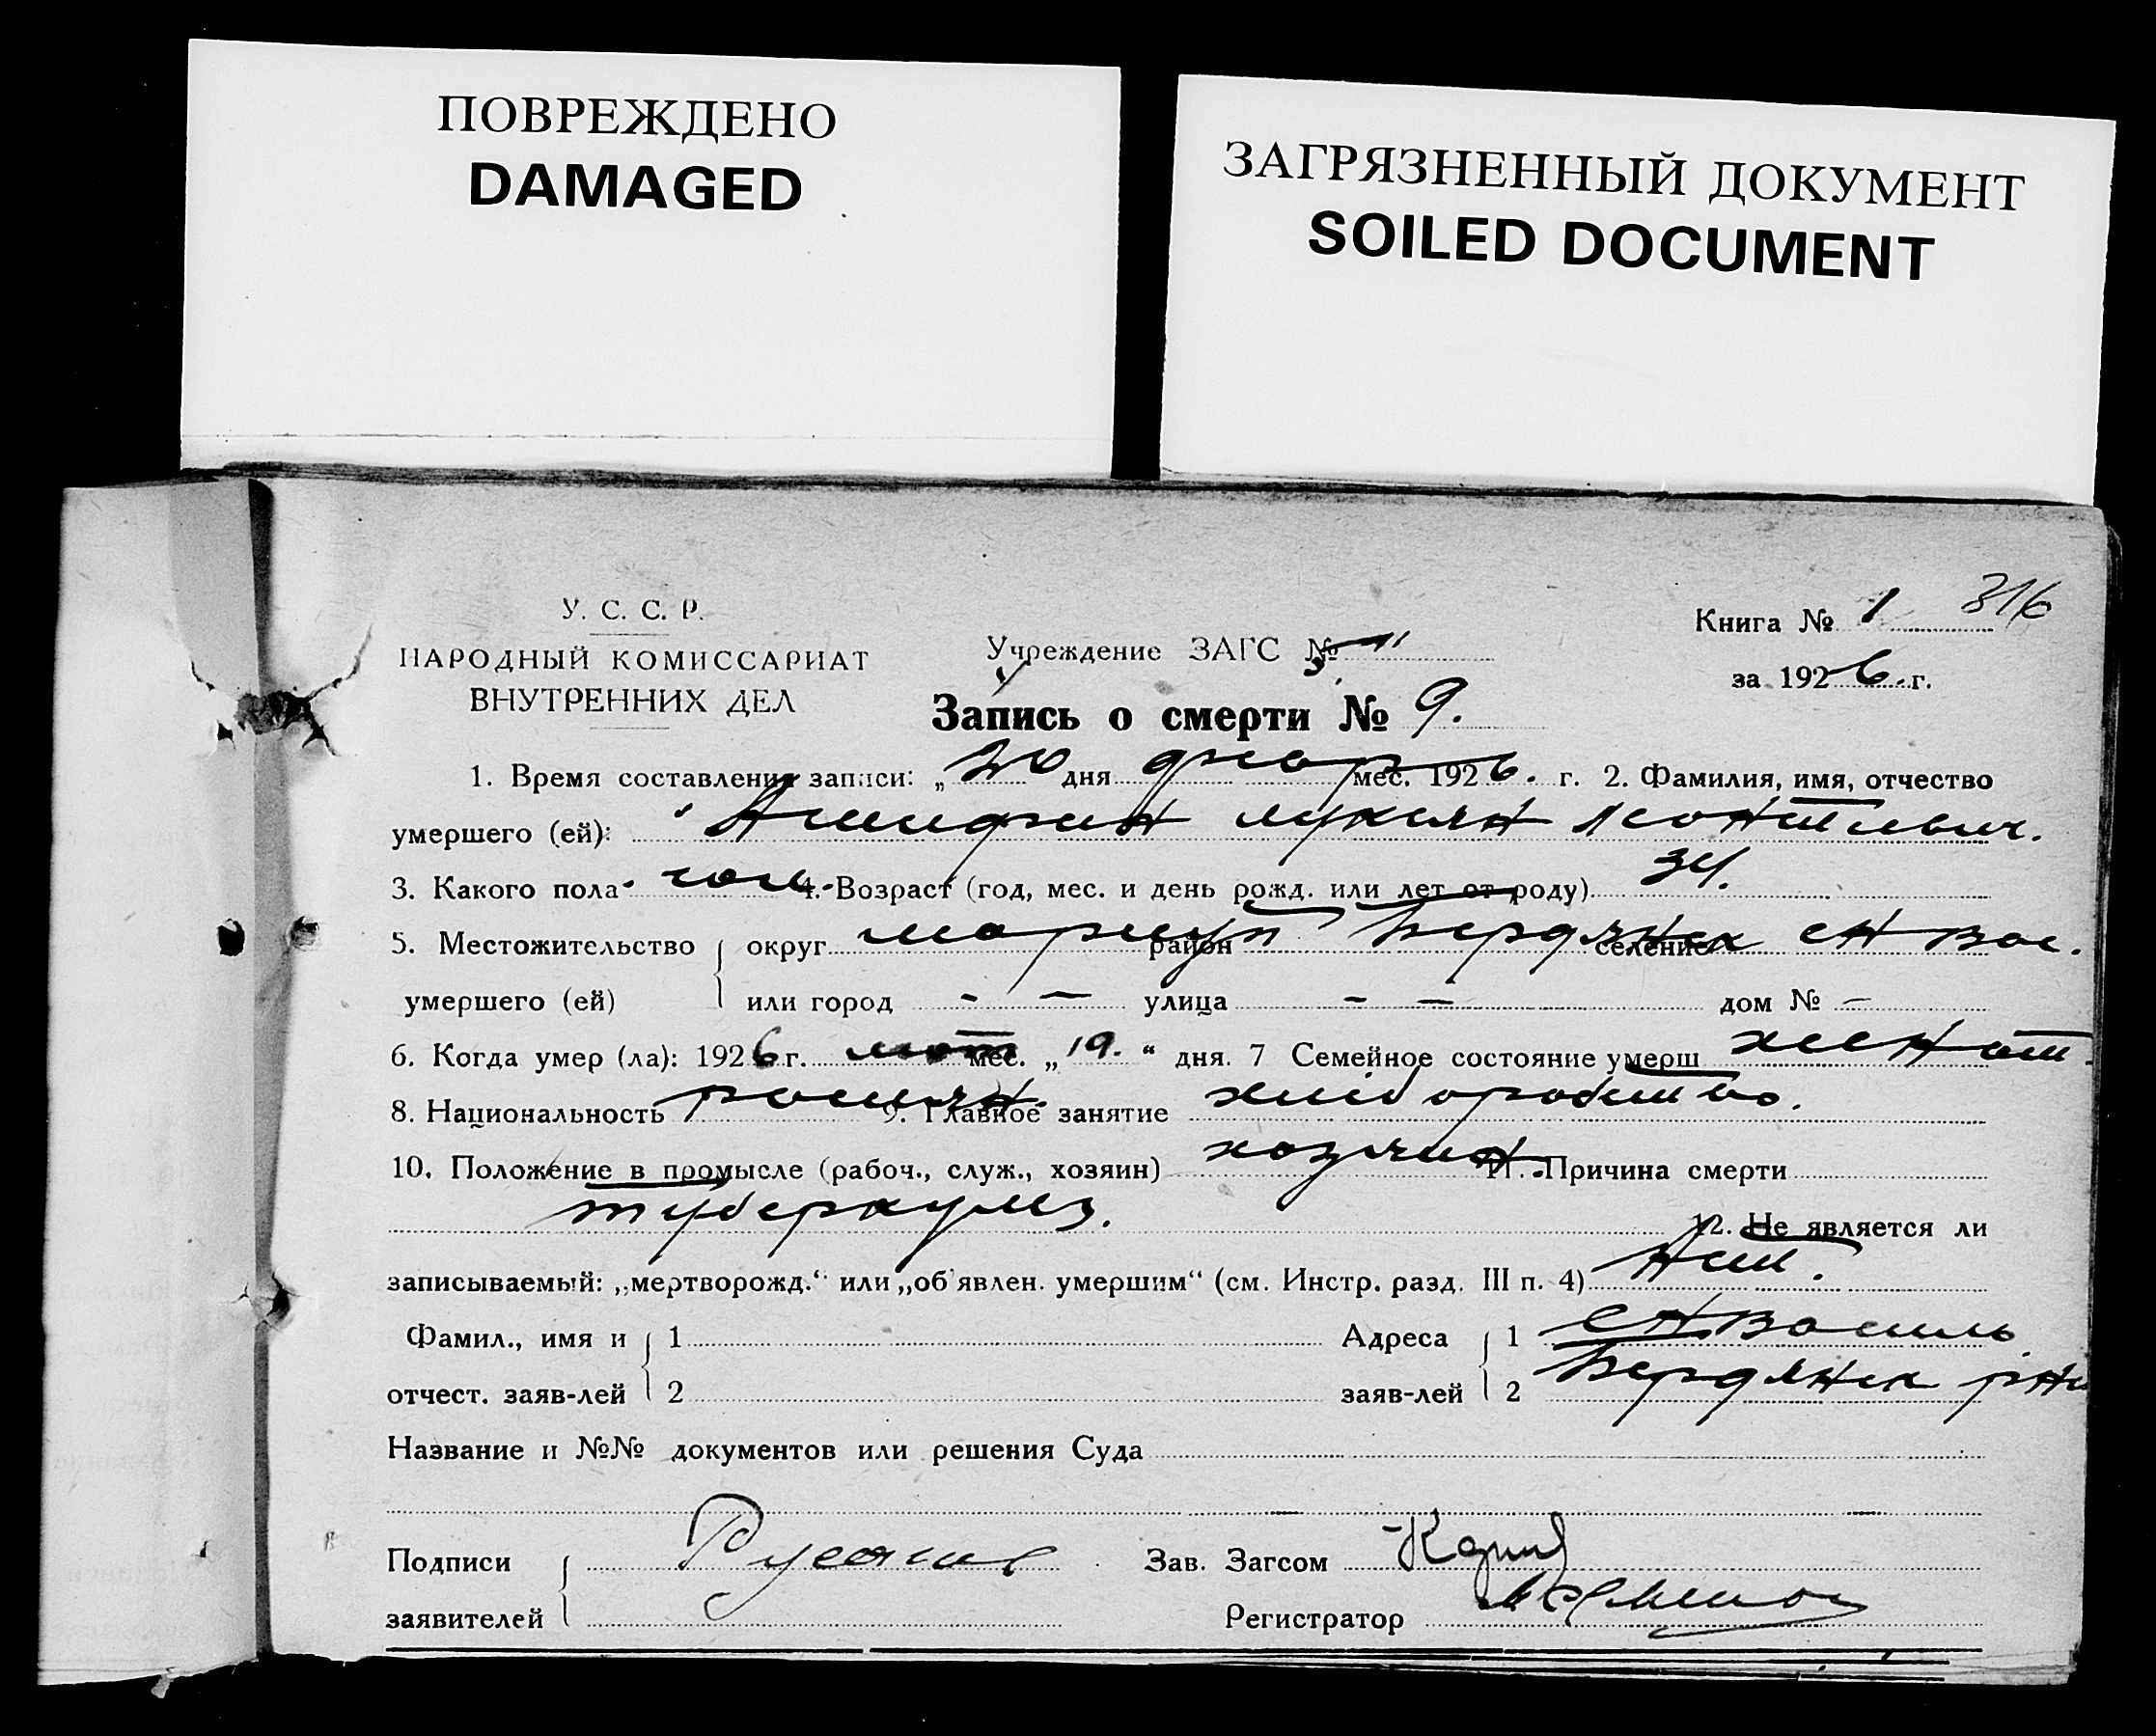 ПОВРЕЖДЕНО
DAMAGED
ЗАГРЯЗНЕННЫЙ ДОКУМЕНТ
SOILED DOCUMENT
316
У. С. С. Р.
НАРОДНЫЙ КОМИССАРИАТ
ВНУТРЕННИХ ДЕЛ
Учреждение ЗАГС №
Книга № 1
за 1926. г.
Запись о смерти № 9.
1. Время составления записи: „20 дня мес. 1926. г. 2. Фамилия, имя, отчество
умершего (ей): Лукиян Леонтиевич.
3. Какого пола 4. Возраст (год, мес. и день рожд. или лет от роду) 34.
5. Местожительство округ Мариуп район Бердянск селение
умершего (ей) или город - — улица - — дом № —
6. Когда умер (ла): 1926 г. мес. „19.“ дня. 7 Семейное состояние умерш женат.
8. Национальность 9. Главное занятие
10. Положение в промысле (рабоч., служ., хозяин) хозяин. 11. Причина смерти
туберкулез.
12. Не является ли
записываемый: „мертворожд.“ или „об'явлен. умершим“ (см. Инстр. разд. III п. 4) Нет.
Фамил., имя и 1 Адреса 1
отчест. заяв-лей 2 заяв-лей 2 Бердянск
Название и №№ документов или решения Суда
Подписи Зав. Загсом
заявителей Регистратор